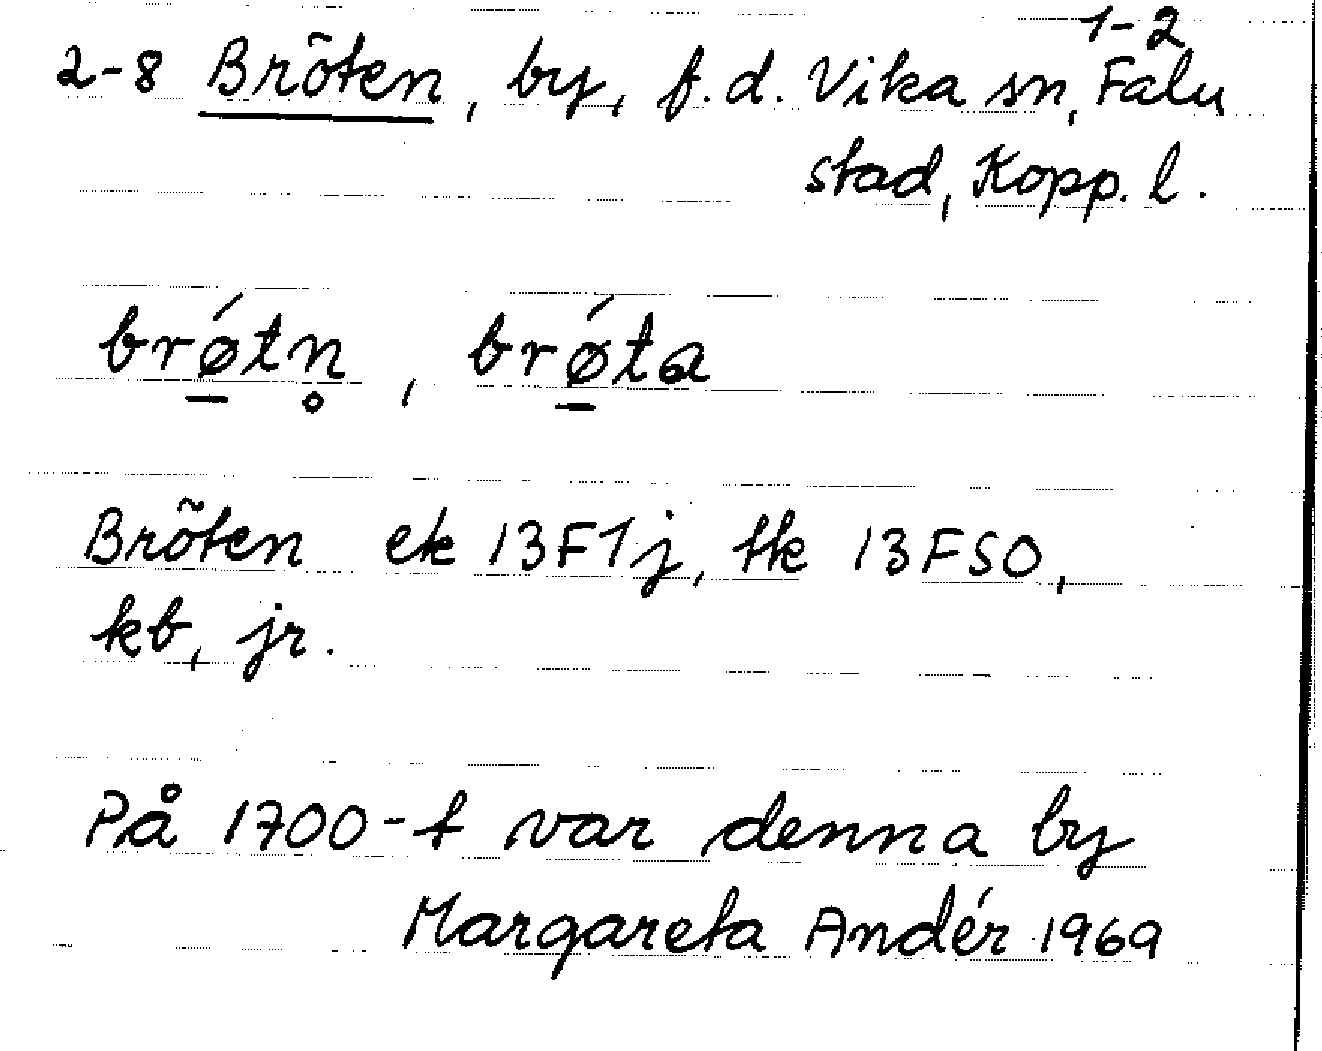 1-2
2-8 Bröten, by, f.d. Vika sn, Falu
stad, Kopp. l.
brǿ̲tn̥, brǿ̲ta
Bröten ek 13F1j, tk 13FSO,
kb, jr.
På 1700-t var denna by
Margareta Andér 1969